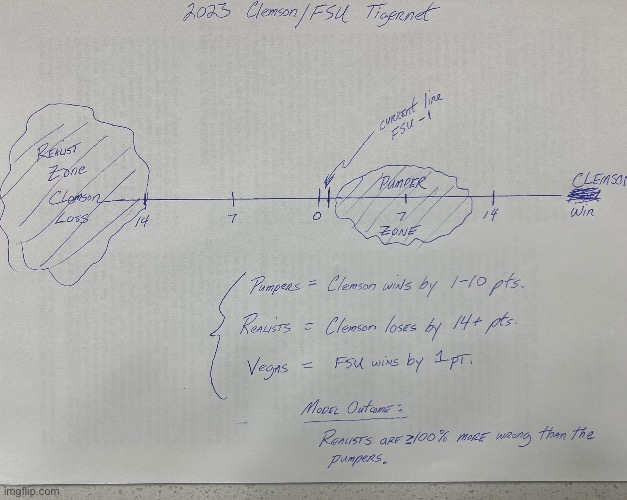 2023 Clemson/FSU Tigernet
current line
FSU -1
REALIST
Zone
Clemson
Loss
PUMPER
ZONE
CLEMSON
Win
14
7
0
7
14
Pumpers = Clemson wins by 1-10 pts.
REALISTS = Clemson loses by 14+ pts.
Vegas = FSU wins by 1 PT.
MODEL Outcome:
REALISTS ARE ≥100% MORE wrong than the
pumpers.
imgflip.com